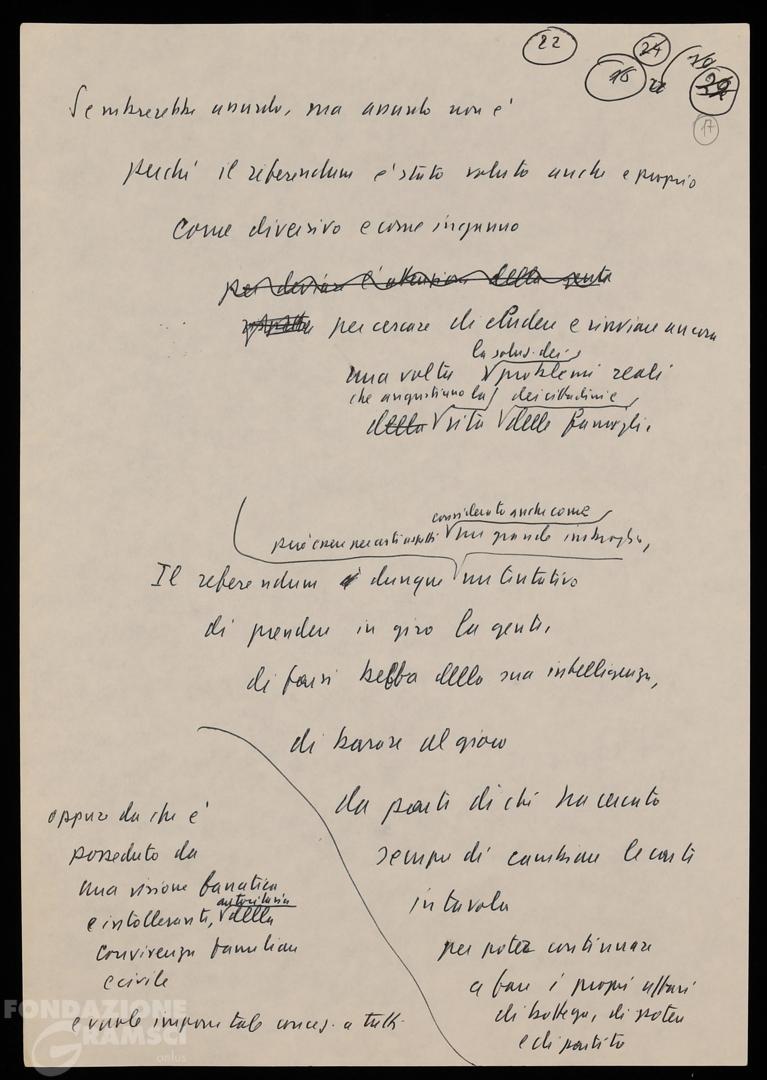 22
24
18
17
Sembrerebbe assurdo, ma assurdo non è
perché il referendum è stato voluto anche e proprio
come diversivo e come inganno
per deviare l'attenzione della gente
per cercare di eludere e rinviare ancora
la soluz. dei
una volta problemi reali
che angustiano la dei cittadini e
della vita delle famiglie.
considerato anche come
può essere per certi aspetti un grande imbroglio,
Il referendum è dunque un tentativo
di prendere in giro la gente,
di farsi beffa della sua intelligenza,
di barare al gioco
da parte di chi ha cercato
sempre di cambiare le carte
in tavola
per poter continuare
a fare i propri affari
di bottega, di potere
e di partito
oppure da chi è
posseduto da
una visione fanatica
autoritaria
e intollerante, della
convivenza familiare
e civile
e vuole imporre tale concez. a tutti
FONDAZIONE
GRAMSCI
onlus